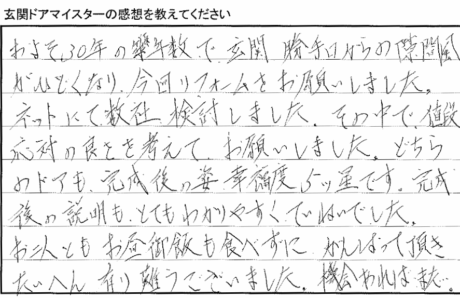 玄関ドアマイスターの感想を教えてください
およそ30年の築年数で、玄関 勝手口からの隙間風
がひどくなり、今回リフォームをお願いしました。
ネットにて数社 検討しました。その中で、値段
応対の良さを考えて、お願いしました。どちら
のドアも、完成後の姿、幸福度 5ッ星です。完成
後の説明も、とてもわかりやすくていねいでした。
お二人とも お昼御飯も食べずに がんばって頂き
たいへん 有り難うございました。機会があれば また…